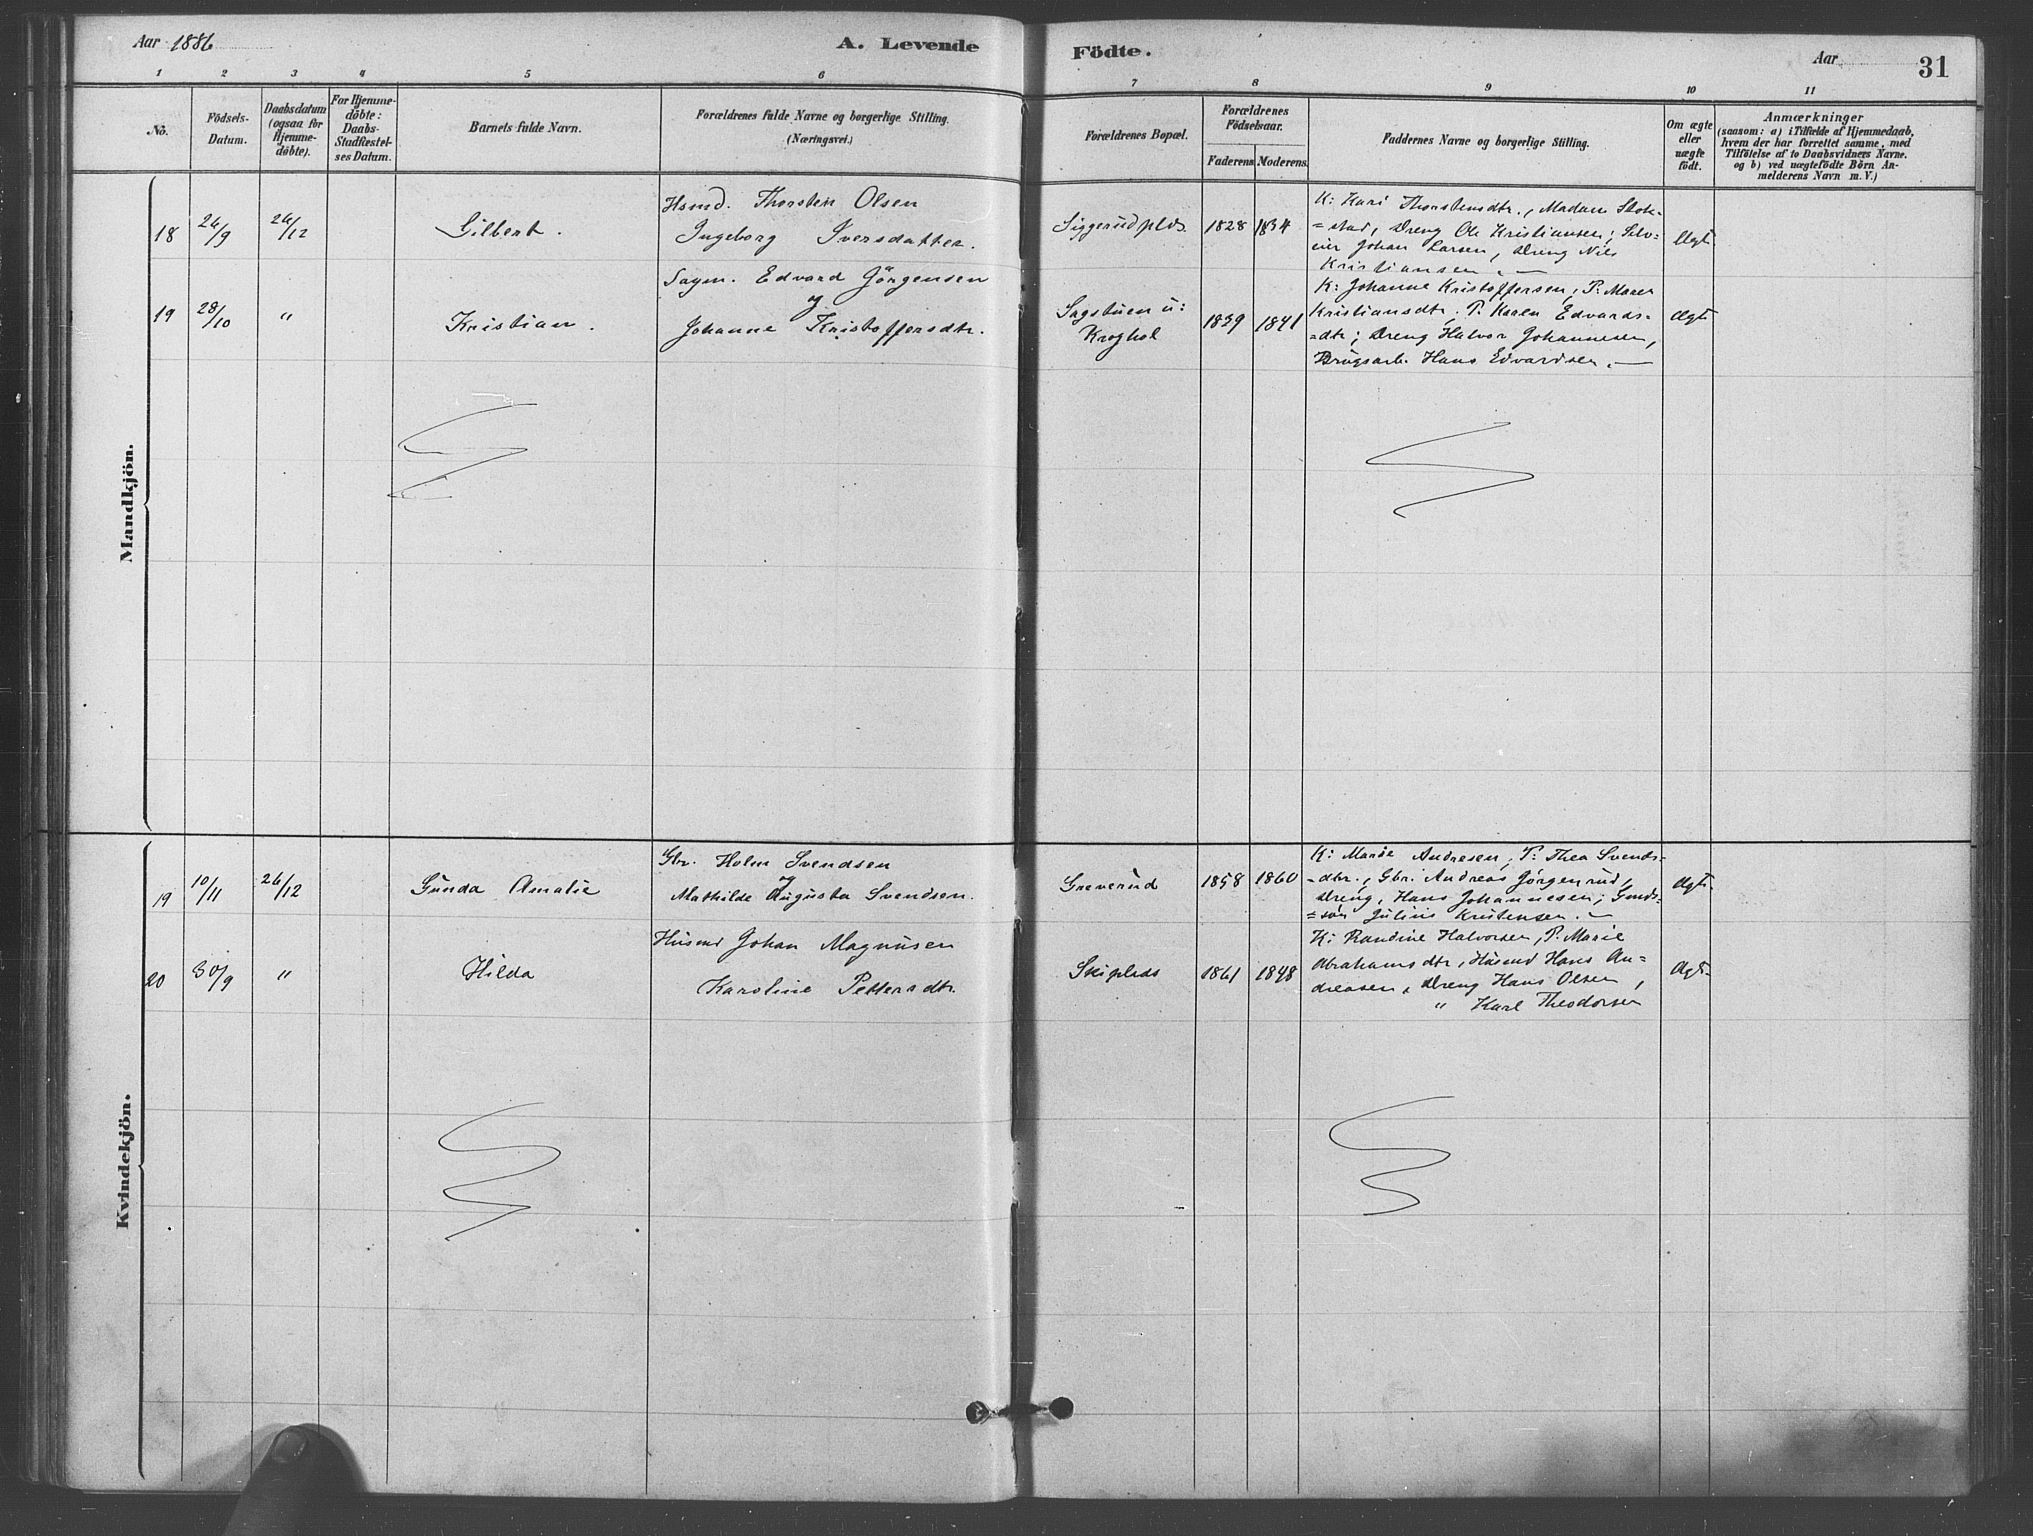 Aar 1886
A. Levende Födte.
Aar
31
1 2 3 4 5 6 7 8 9 10 11
No.
Födsels-
Datum.
Daabsdatum
(ogsaa for
Hjemme-
döbte).
For Hjemme-
döbte:
Daabs-
Stadfæstel-
ses Datum.
Barnets fulde Navn.
Forældrenes fulde Navne og borgerlige Stilling.
(Næringsvei.)
Forældrenes Bopæl.
Forældrenes
Födselsaar.
Faderens. Moderens.
Faddernes Navne og borgerlige Stilling.
Om ægte
eller
uægte
födt.
Anmærkninger
(saasom: a) i Tilfælde af Hjemmedaab,
hvem der har forrettet samme, med
Tilföielse af to Daabsvidners Navne.
og b) ved uægtefödte Börn An-
melderens Navn m. V.)
Mandkjön.
18 26/9 26/12 Gilbert.
Hsmd. Thorsten Olsen
Ingeborg Iversdatter.
Siggerudplds 1828 1834
K: Kari Thorstensdtr., Madam Stok-
=stad, Dreng Ole Kristiansen; Selv-
eier Johan Larsen, Dreng Nils
Kristiansen.
Ægt.
19 28/10 " Kristian.
Sagm. Edvard Jörgensen
Johanne Kristoffersdtr.
Sagstuen u:
Kroghol
1839 1841
K: Johanne Kristoffersen, P: Maren
Kristiansdtr, P. Karen Edvards-
=dtr; Dreng Halvor Johannesen,
Brugsarb. Hans Edvardsen.
Ægt.
Kvindekjön.
19 10/11 26/12 Gunda Amalie
Gbr. Holm Svendsen
Mathilde Augusta Svendsen.
Greverud 1858 1860
K: Marie Andresen, P: Thea Svends-
=dtr., Gbr: Andreas Jörgenrud,
Dreng, Hans Johannesen; Gmds-
=søn Julius Kristensen.
Ægt.
20 30/9 " Hilda
Husmd Johan Magnusen
Karoline Pettersdtr.
Skiplads 1861 1848
K: Randine Halvorsen, P. Marie
Abrahamsdtr, Husmd Hans An=
dreasen, Dreng Hans Olsen,
" Karl Theodorsen
Ægt.